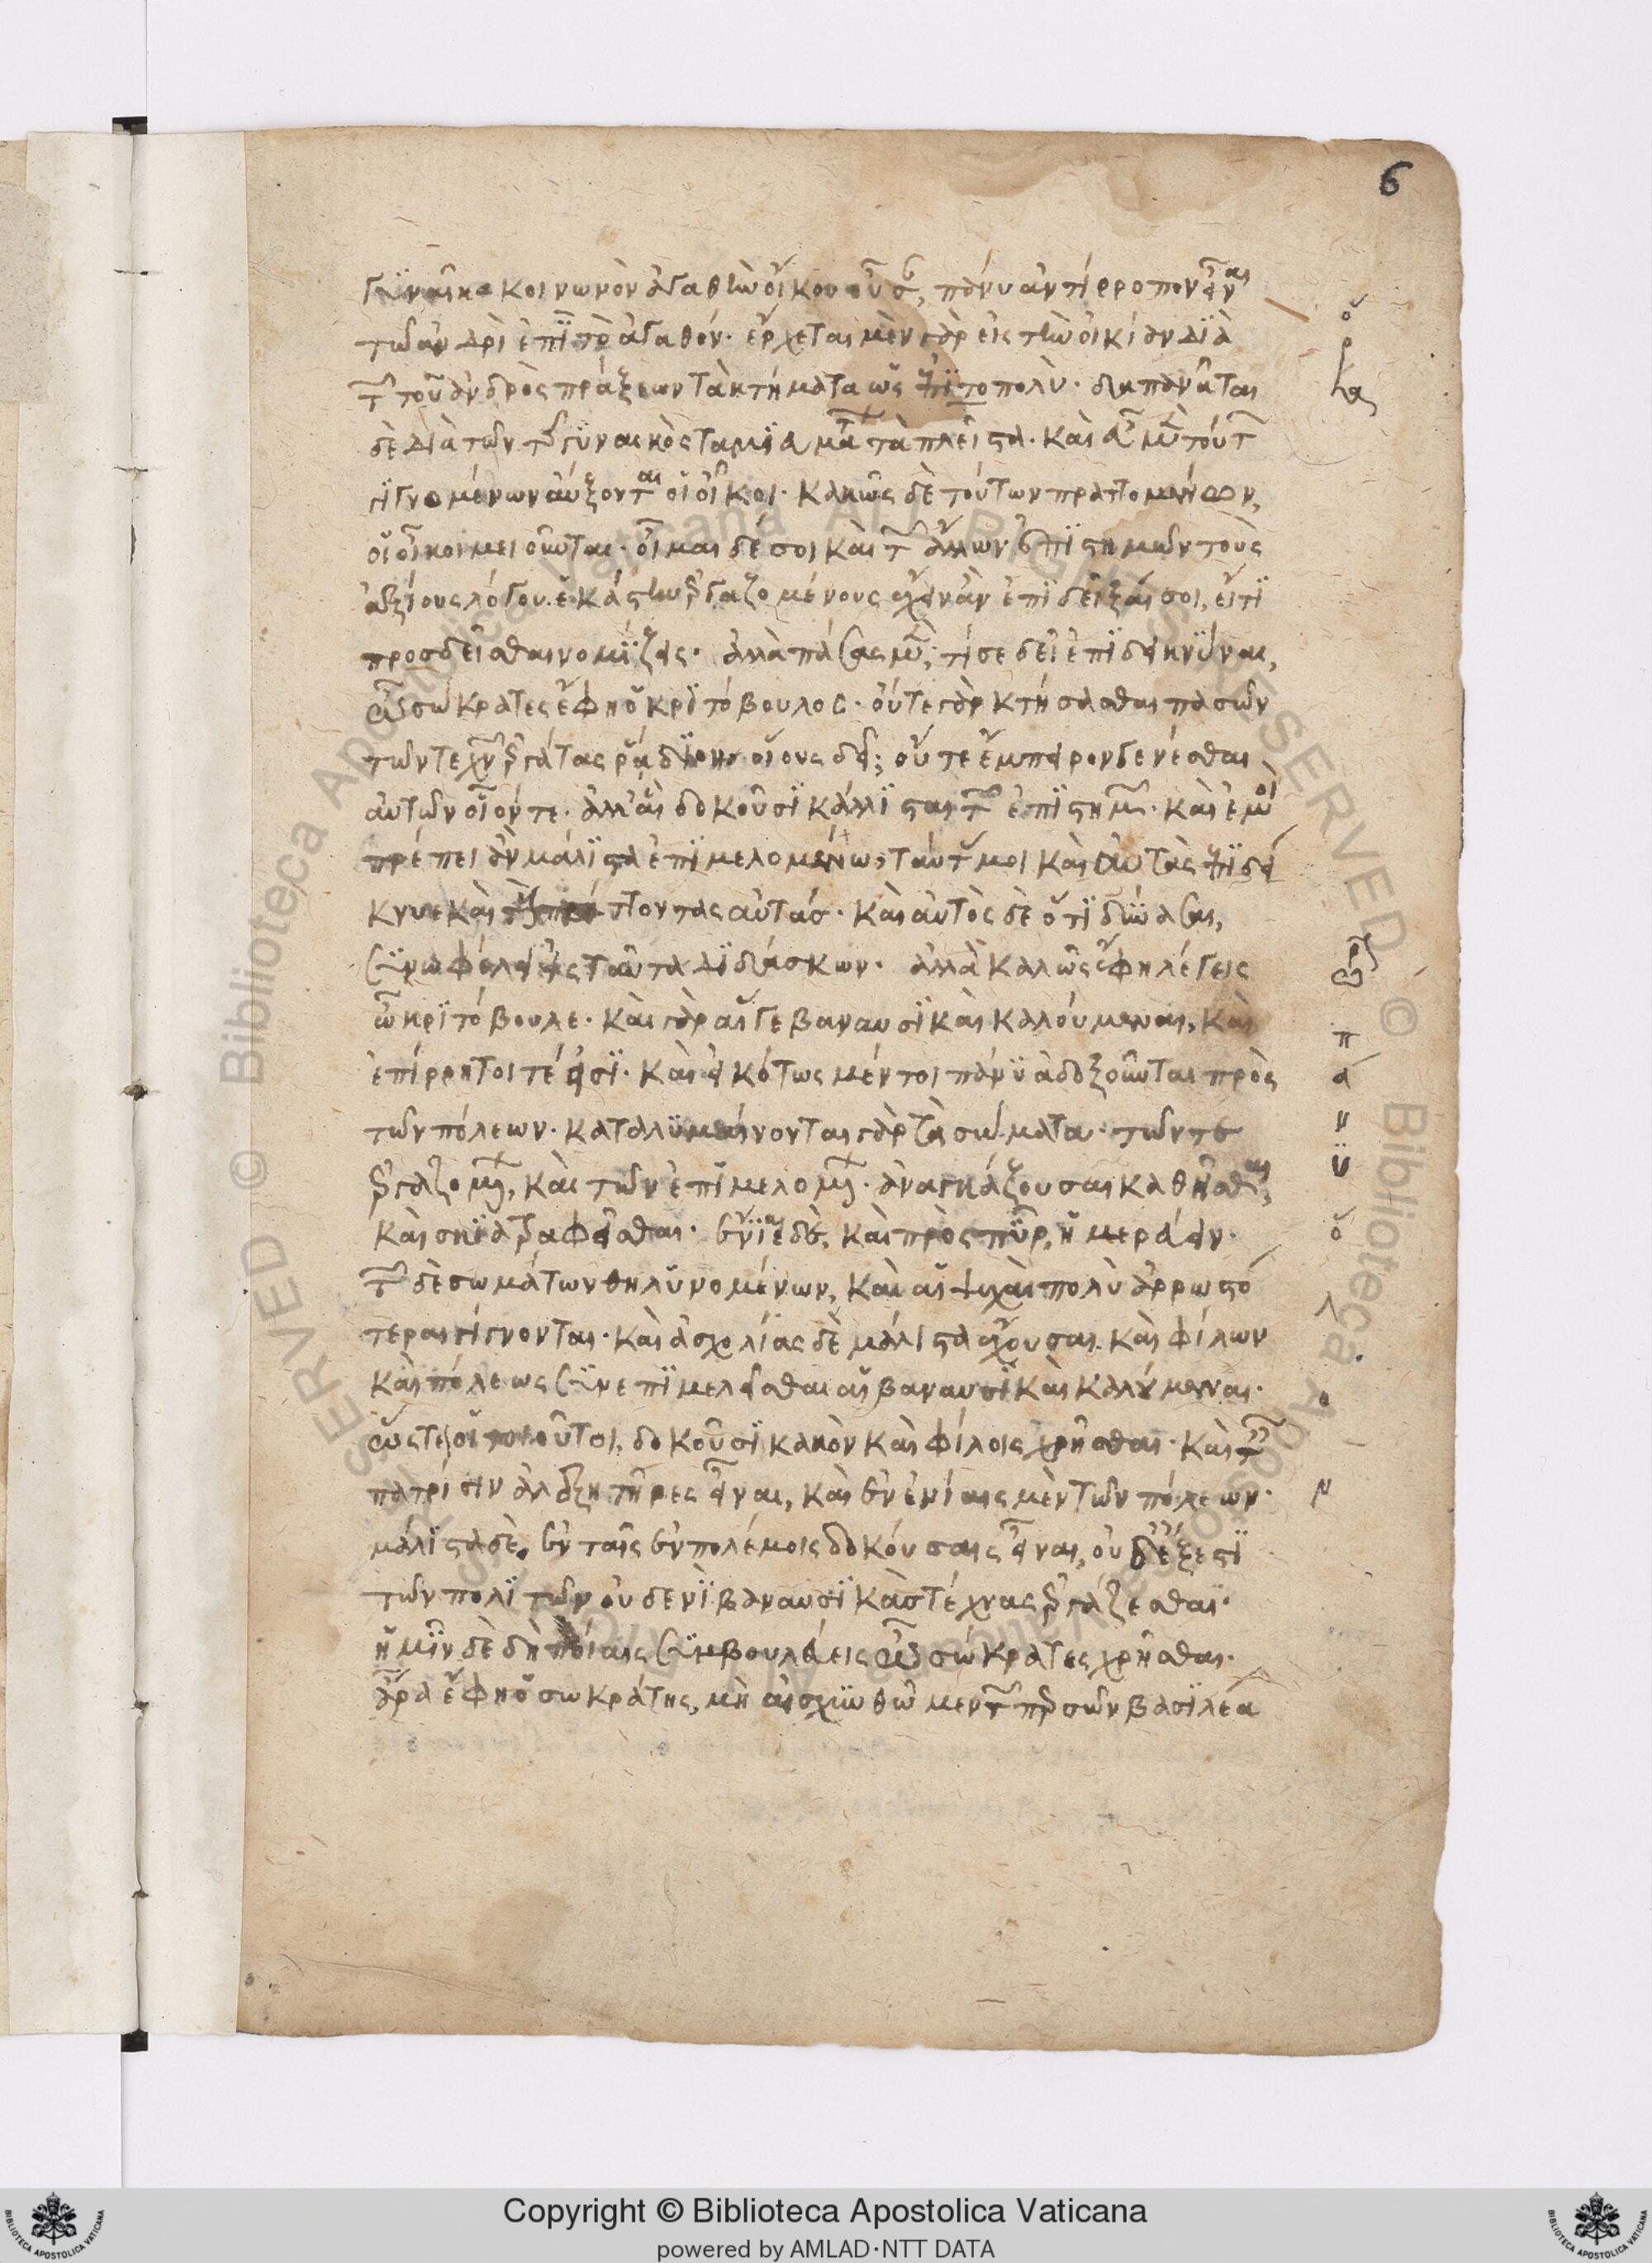 6
γυναῖκα κοινωνὸν ἀγαθὴν οἴκου οὖσαν, πάνυ ἀντίρροπον εἶναι
τῶ ἀνδρὶ ἐπὶ τὸ ἀγαθόν. ἔρχεται μὲν γὰρ εἰς τὴν οἰκίαν διὰ
τῶν τοῦ ἀνδρὸς πράξεων τὰ κτήματα ὡς ἐπὶ τὸ πολύ. δαπανᾶται
δὲ διὰ τῶν τῆς γυναικὸς ταμιευμάτων τὰ πλεῖστα. καὶ εὖ μὲν τούτων
γιγνομένων αὔξονται οἱ οἶκοι. κακῶς δὲ τούτων πραττομένων,
οἱ οἶκοι μειοῦνται. οἶμαι δέ σοι καὶ τῶν ἄλλων ἐπιστημῶν τοὺς
ἀξίους λόγου ἑκάστην ἐργαζομένους ἔχειν ἂν ἐπιδεῖξαί σοι, εἴ τι
προσδεῖσθαι νομίζεις. ἀλλὰ πάσας μὲν τί σε δεῖ ἐπιδεικνύναι,
ὦ σώκρατες ἔφη ὁ κριτόβουλος. οὔτε γὰρ κτήσασθαι πασῶν
τῶν τεχνῶν ἐργάτας ῥάδιον οἵους δεῖ; οὔτε ἔμπειρον γενέσθαι
αὐτῶν οἷόν τε. ἀλλ' αἳ δοκοῦσι κάλλισται τῶν ἐπιστημῶν. καὶ ἐμοὶ
πρέποι ἂν μάλιστα ἐπιμελομένω, ταύτας μοι καὶ αὐτὰς ἐπιδεί
κνυε καὶ τοὺς πράττοντας αὐτάς. καὶ αὐτὸς δὲ ὅτι δύνασαι,
συνωφέλει εἰς ταῦτα διδάσκων. ἀλλὰ καλῶς ἔφη λέγεις
ὦ κριτόβουλε. καὶ γὰρ αἵ γε βαναυσικαὶ καλούμεναι, καὶ
ἐπίρρητοί τέ εἰσι. καὶ εἰκότως μέντοι πάνυ ἀδοξοῦνται πρὸς
τῶν πόλεων. καταλυμαίνονται γὰρ τὰ σώματα τῶν τε
ἐργαζομένων, καὶ τῶν ἐπιμελομένων. ἀναγκάζουσαι καθῆσθαι,
καὶ σκιατραφεῖσθαι. ἔνιαι δὲ, καὶ πρὸς πῦρ, ἡμερεύειν.
τῶν δὲ σωμάτων θηλυνομένων, καὶ αἱ ψυχαὶ πολὺ ἀρρωστό
τεραι γίγνονται. καὶ ἀσχολίας δὲ μάλιστα ἔχουσαι καὶ φίλων
καὶ πόλεως συνεπιμελεῖσθαι αἱ βαναυσικαὶ καλούμεναι.
ὥστε οἱ τοιοῦτοι, δοκοῦσι κακοὶ καὶ φίλοις χρῆσθαι. καὶ ταῖς
πατρίσιν ἀλεξητῆρες εἶναι, καὶ ἐν ἐνίαις μὲν τῶν πόλεων.
μάλιστα δὲ, ἐν ταῖς εὐπολέμοις δοκούσαις εἶναι, οὐδ' ἔξεστι
τῶν πολιτῶν οὐδενὶ βαναυσικὰς τέχνας ἐργάζεσθαι.
ἡμῖν δὲ δὴ ποίαις συμβουλεύεις ὦ σώκρατες χρῆσθαι.
ἆρα ἔφη ὁ σωκράτης, μὴ αἰσχυνθῶμεν τὸν περσῶν βασιλέα